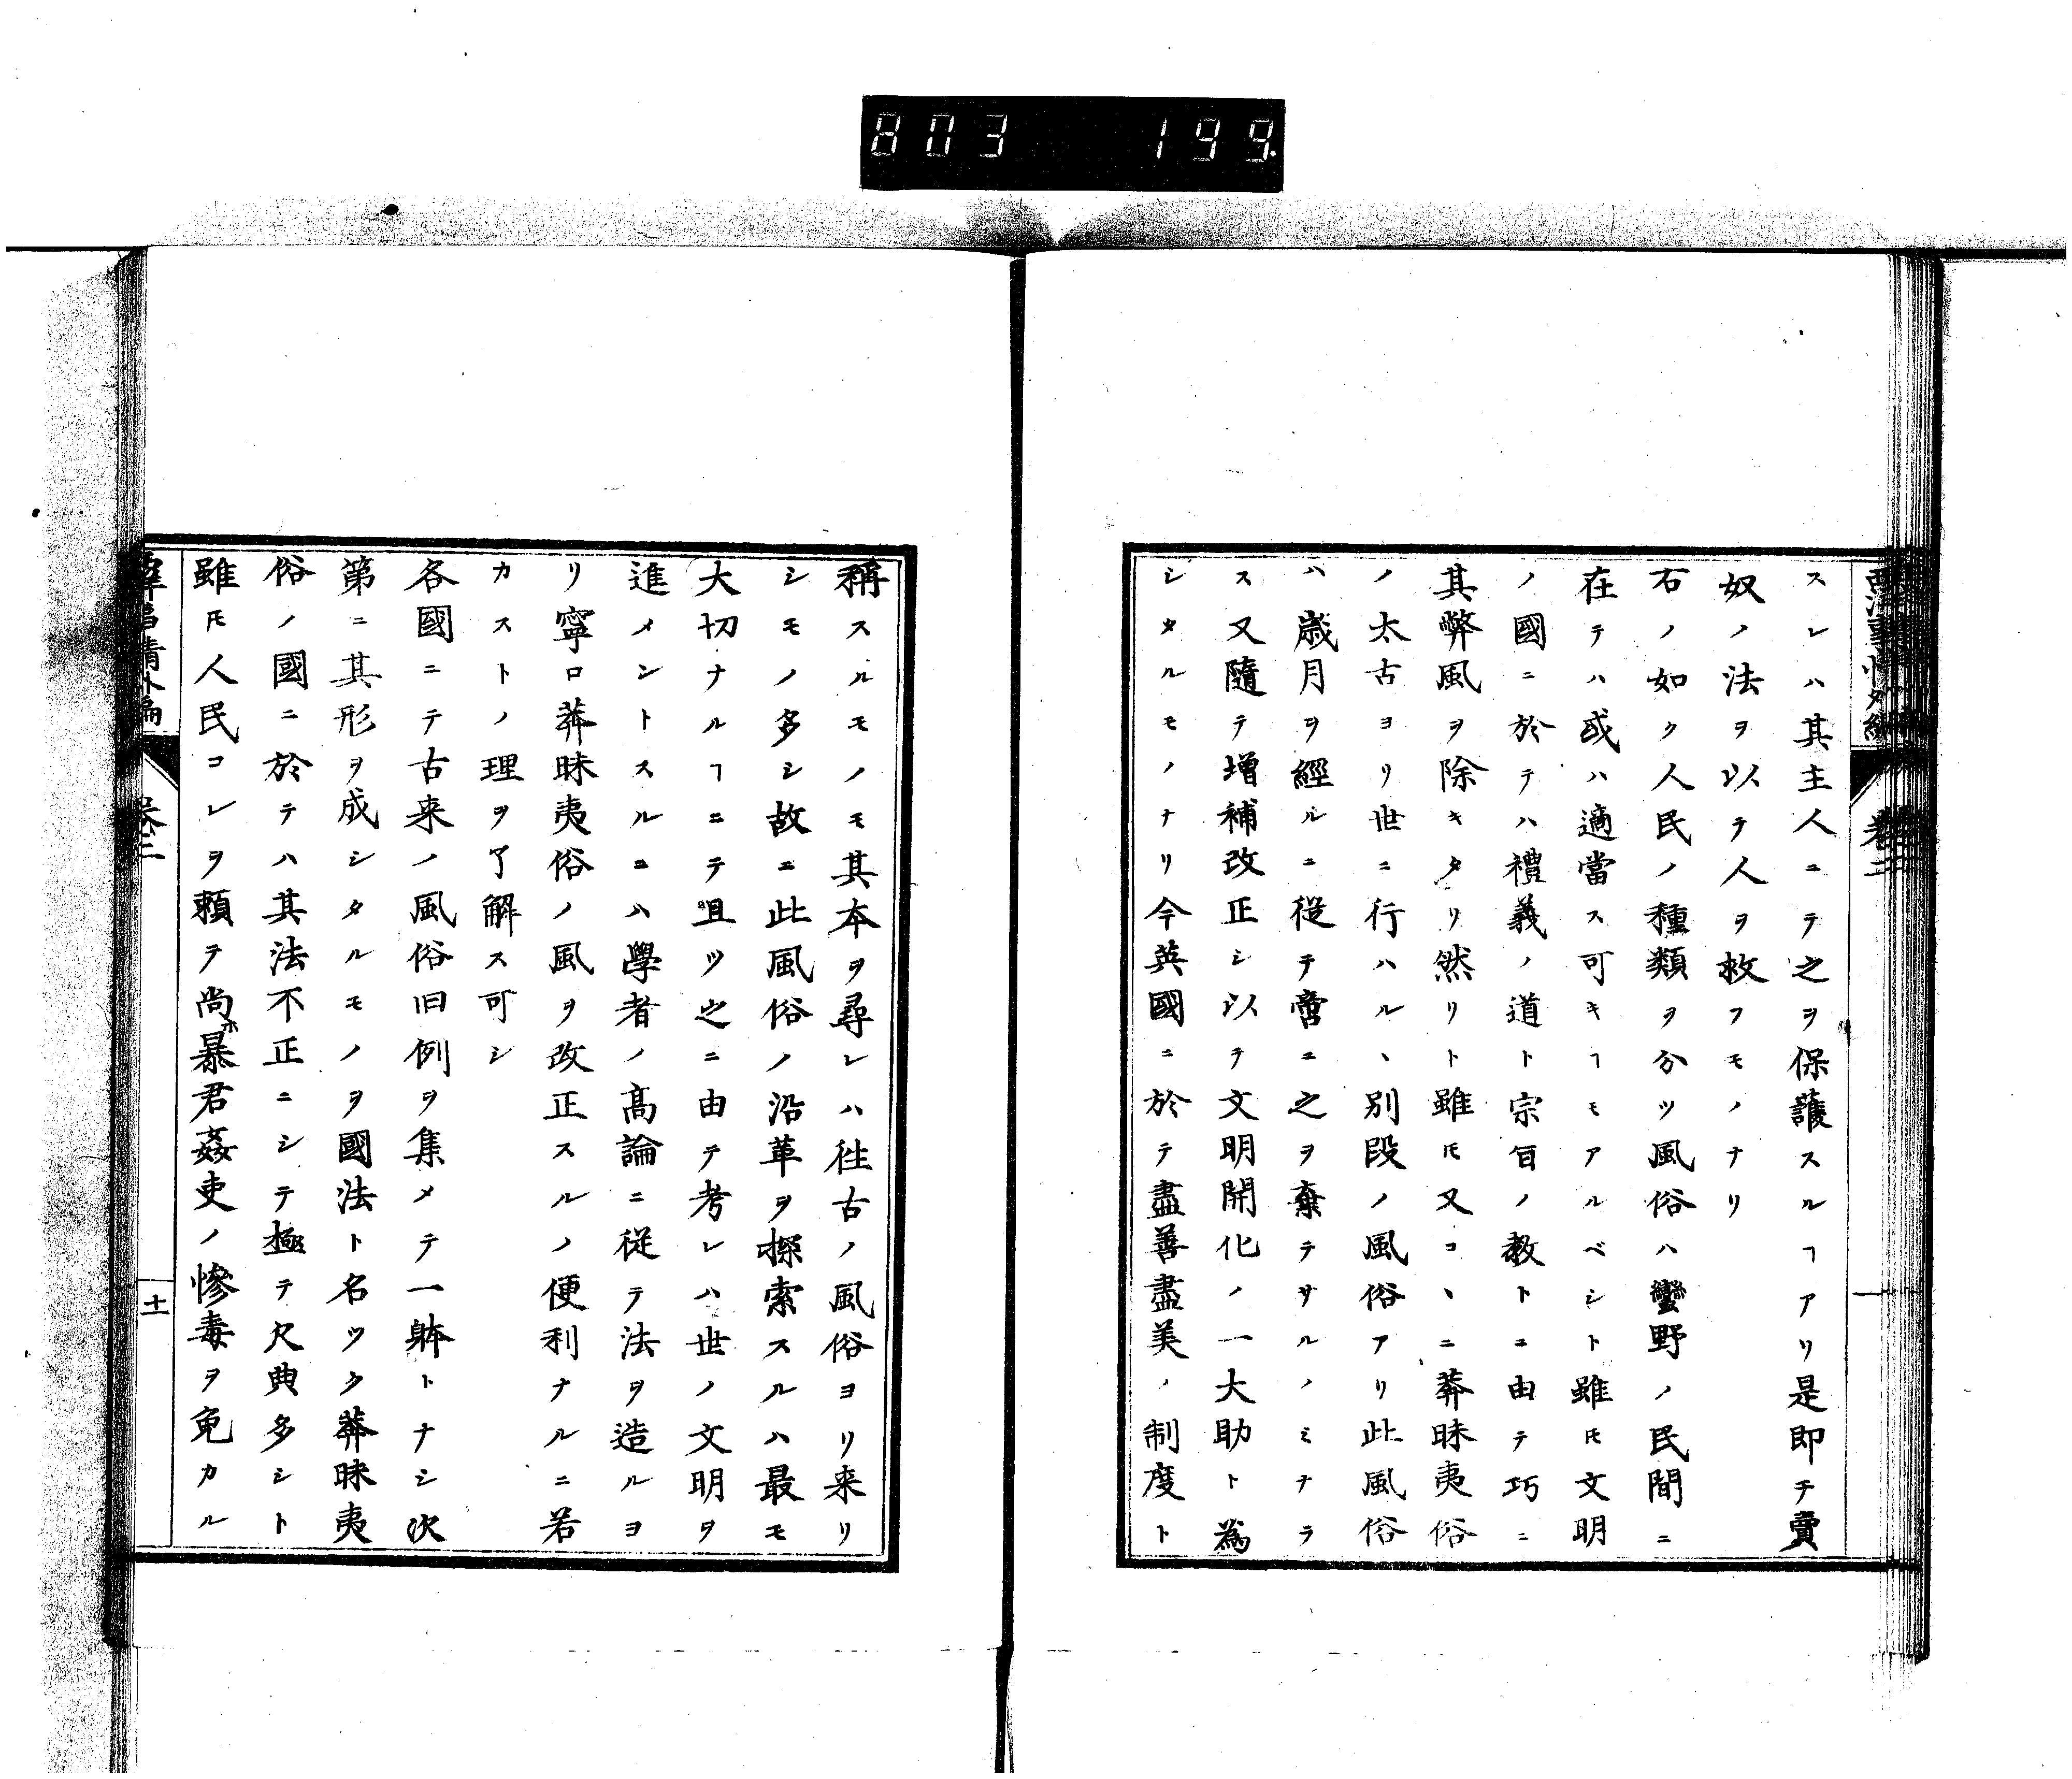 803 199.
西洋事情外編 卷二
スレハ其主人ニテ之ヲ保護スルヿアリ是即チ賣
奴ノ法ヲ以テ人ヲ救フモノナリ
右ノ如ク人民ノ種類ヲ分ツ風俗ハ蠻野ノ民間ニ
在テハ或ハ適當ス可キヿモアルベシト雖𪜈文明
ノ國ニ於テハ禮義ノ道ト宗旨ノ教トニ由テ巧ニ
其弊風ヲ除キタリ然リト雖𪜈又コヽニ莽昧夷俗
ノ太古ヨリ世ニ行ハルヽ別段ノ風俗アリ此風俗
ハ歳月ヲ經ルニ從テ啻ニ之ヲ棄テサルノミナラ
ス又隨テ增補改正シ以テ文明開化ノ一大助ト為
シタルモノナリ今英國ニ於テ盡善盡美ノ制度ト
稱スルモノモ其本ヲ尋レハ徃古ノ風俗ヨリ来リ
シモノ多シ故ニ此風俗ノ沿革ヲ探索スルハ最モ
大切ナルヿニテ且ツ之ニ由テ考レハ世ノ文明ヲ
進メントスルニハ學者ノ髙論ニ從テ法ヲ造ルヨ
リ寧ロ莽昧夷俗ノ風ヲ改正スルノ便利ナルニ若
カストノ理ヲ了解ス可シ
各國ニテ古来ノ風俗旧例ヲ集メテ一躰トナシ次
第ニ其形ヲ成シタルモノヲ國法ト名ツク莽昧夷
俗ノ國ニ於テハ其法不正ニシテ極テ欠典多シト
雖𪜈人民コレヲ頼テ尚ホ暴君姦吏ノ慘毒ヲ免カル
西洋事情外編 卷二 十一